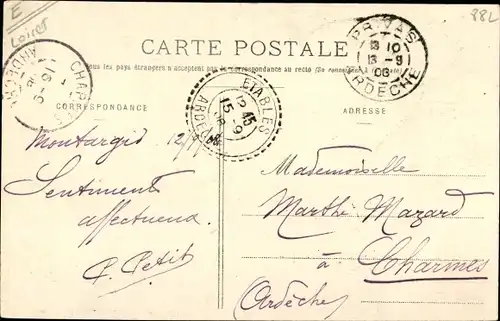 E
Loiret
88L
CARTE POSTALE
Tous les pays étrangers n'acceptent pas la correspondance au recto (Se renseigner
CORRESPONDANCE
ADRESSE
PRIVAS
13 10
13 -9
06
ARDÈCHE
ETABLES
12 45
15 -9
ARDÈCHE
CHARMES
ARDÈCHE
Montargis 12/9
Sentiments
affectueux
P. Petit
Mademoiselle
Marthe Mazard
à Charmes
(Ardèche)